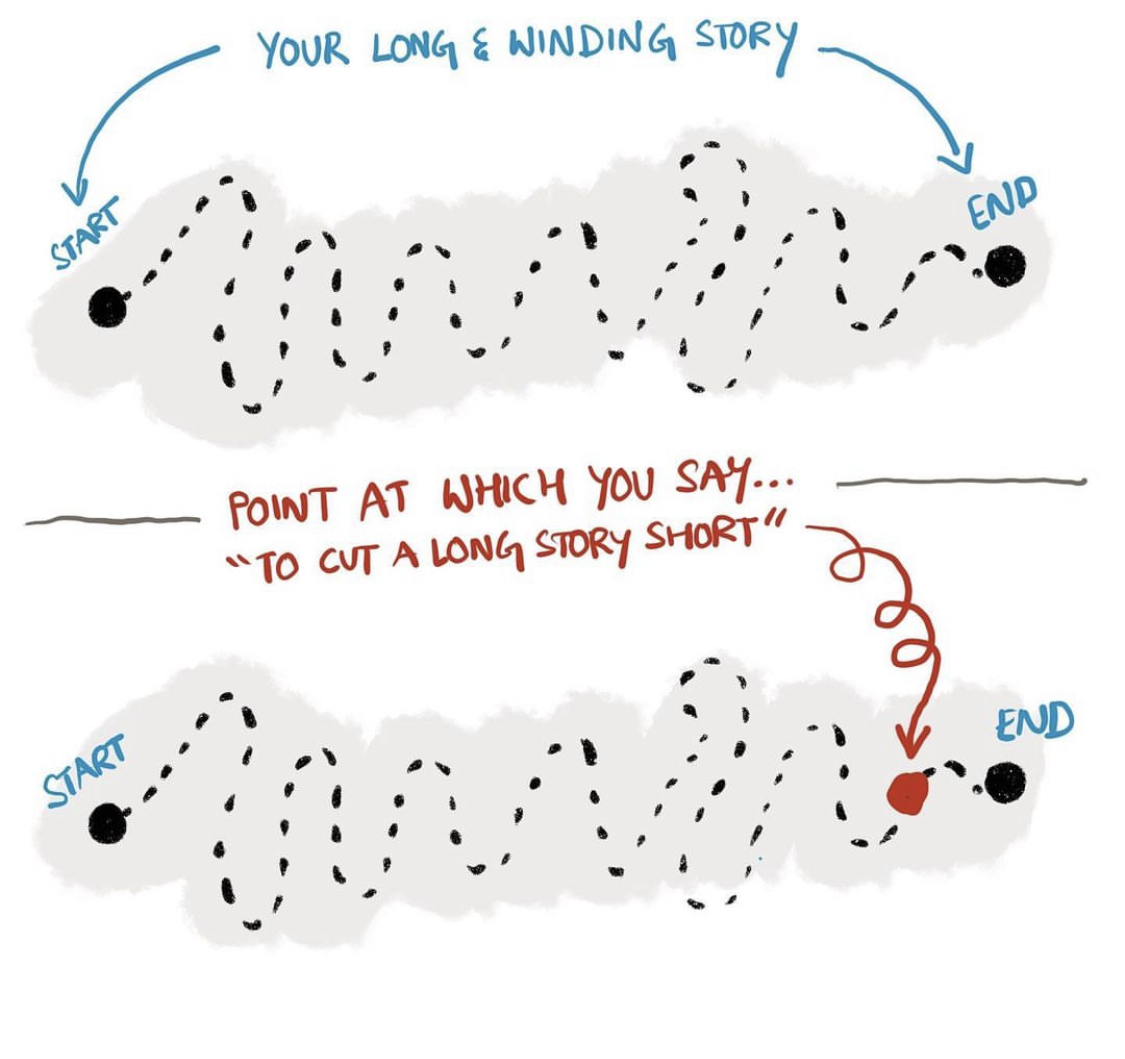 YOUR LONG & WINDING STORY
START
END
POINT AT WHICH YOU SAY...
"TO CUT A LONG STORY SHORT"
START
END